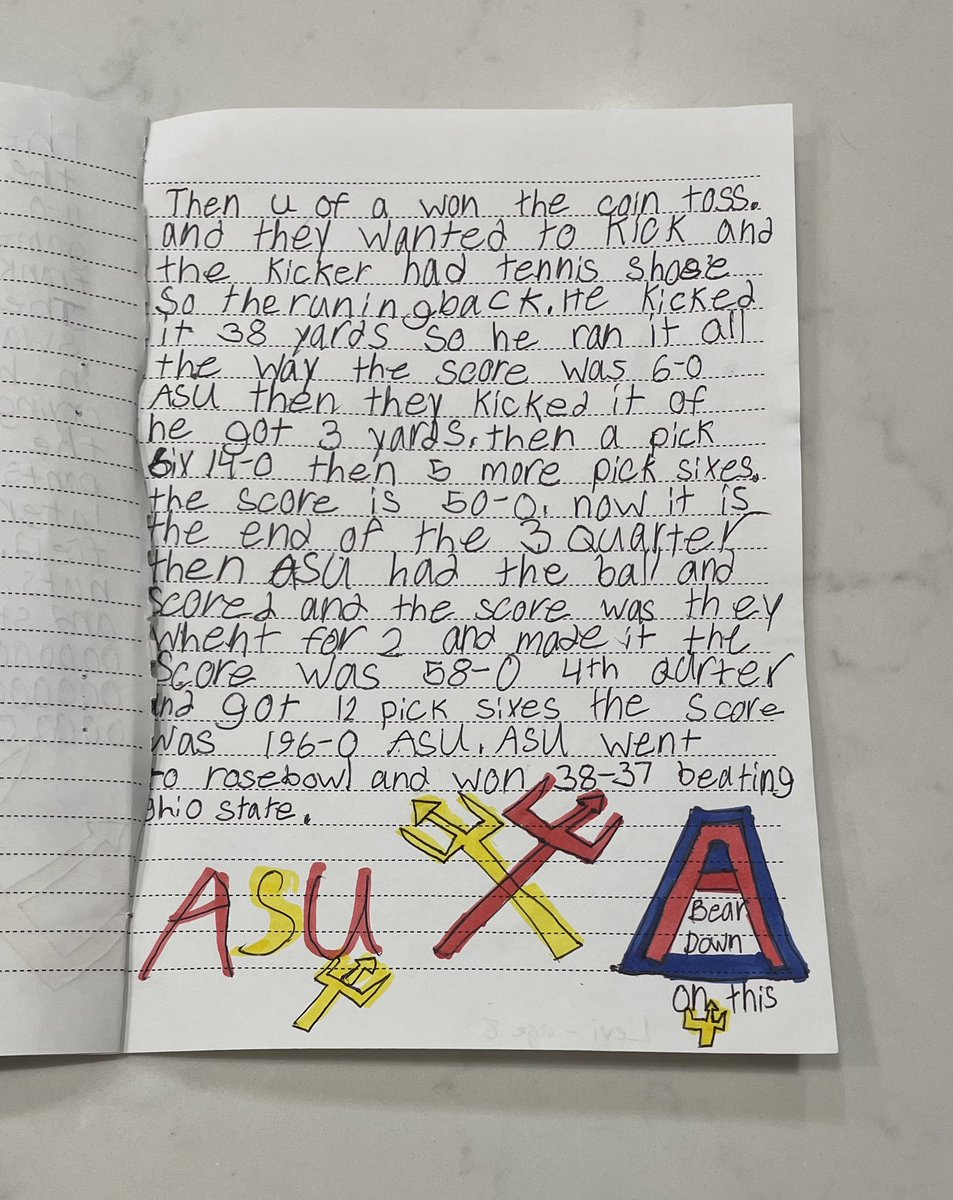 Then u of a won the coin toss.
and they wanted to kick and
the kicker had tennis shose
So the runing back. He kicked
it 38 yards so he ran it all
the way the score was 6-0
ASU then they kicked it of
he got 3 yards. then a pick
six 14-0 then 5 more pick sixes.
the score is 50-0. now it is
the end of the 3 Quarter
then ASU had the ball and
scored and the score was they
whent for 2 and made it the
Score was 58-0 4th qarter
and got 12 pick sixes the score
was 196-0 ASU. ASU went
to rosebowl and won 38-37 beating
ohio state.
ASU
A
Bear
Down
on this
Levi - age 8